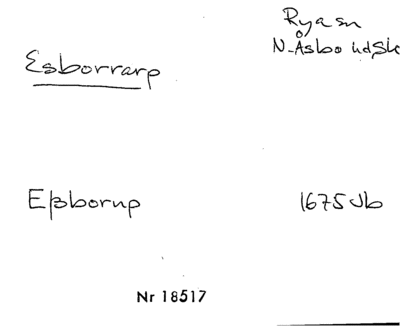 Rya sn
N-Åsbo hd, Sk
Esborrarp
Eßborup 1675 Jb
Nr 18517